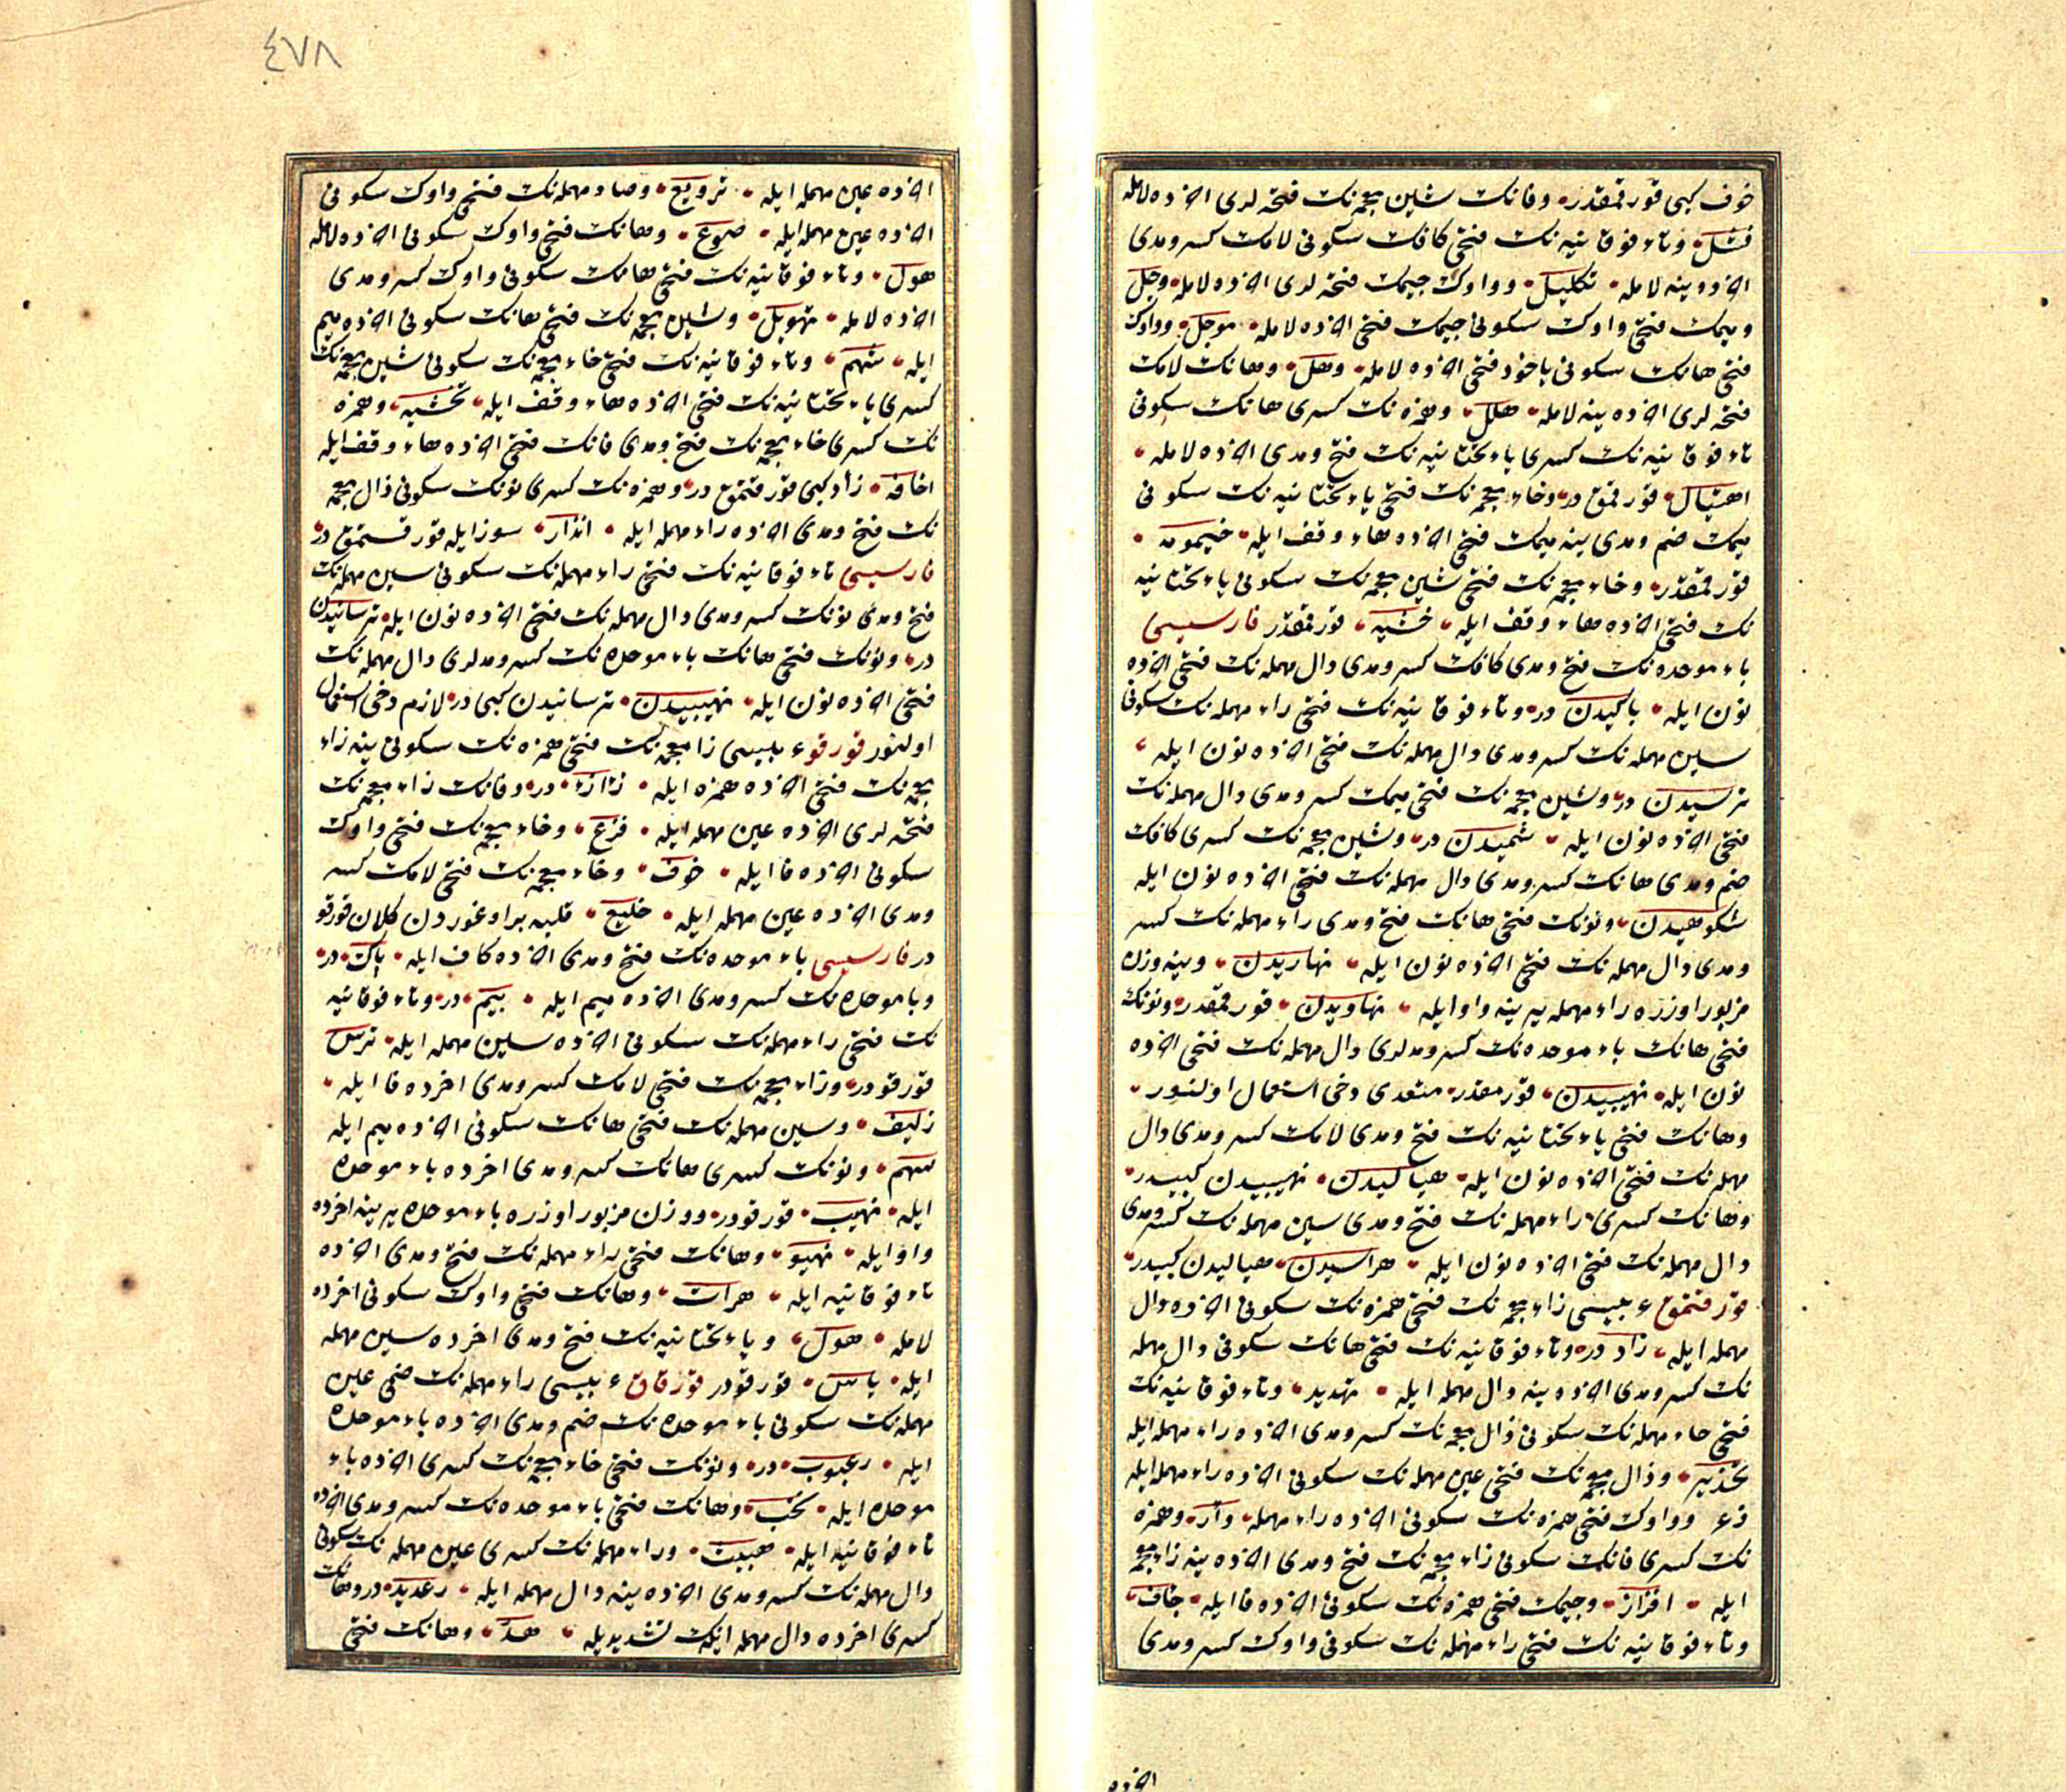 خوف كبى قورقمقدر وفانك شين معجمه نك فتحه لرى اخرده لامله
فشل وتاء فوقانيه نك فتحى كافك سكونى لامك كسر ومدى
اخرده ينه لامله تكليل وواوك جيمك فتحه لرى اخرده لامله وجل
وميمك فتحى واوك سكونى جيمك فتحى اخرده لامله موجل وواوك
فتحى هانك سكونى ياخود فتحى اخرده لامله وهل وهانك لامك
فتحه لرى اخرده ينه لامله هلل وهمزه نك كسرى هانك سكونى
تاء فوقانيه نك كسرى ياء تحتانيه نك فتح ومدى اخرده لامله
اهتيال قورقمق در وخاء معجمه نك فتحى ياء تحتانيه نك سكونى
ميمك ضم ومدى ينه ميمك فتحى اخرده هاء وقف ايله خيمومه
قورقمقدر وخاء معجمه نك فتحى شين معجمه نك سكونى ياء تحتانيه
نك فتحى اخرده هاء وقف ايله خشيه قورقمقدر فارسيسى
باء موحده نك فتح ومدى كافك كسر ومدى دال مهمله نك فتحى اخرده
نون ايله باكيدن در وتاء فوقانيه نك فتحى راء مهمله نك سكونى
سين مهمله نك كسر ومدى دال مهمله نك فتحى اخرده نون ايله
ترسيدن در وشين معجمه نك فتحى ميمك كسر ومدى دال مهمله نك
فتحى اخرده نون ايله شميدن در وشين معجمه نك كسرى كافك
ضم ومدى هانك كسر ومدى دال مهمله نك فتحى اخرده نون ايله
شكوهيدن ونونك فتحى هانك فتح ومدى راء مهمله نك كسر
ومدى دال مهمله نك فتحى اخرده نون ايله نهاريدن وينه وزن
مزبور اوزره راء مهمله يرينه واو ايله نهاويدن قورقمقدر ونونك
فتحى هانك باء موحده نك كسر ومدلرى دال مهمله نك فتحى اخرده
نون ايله نهيبيدن قورقمقدر متعدى دخى استعمال اولنور
وهانك فتحى ياء تحتانيه نك فتح ومدى لامك كسر ومدى دال
مهمله نك فتحى اخرده نون ايله هياليدن نهيبيدن كبيدر
وهانك كسرى راء مهمله نك فتح ومدى سين مهمله نك كسر ومدى
دال مهمله نك فتحى اخرده نون ايله هراسيدن هياليدن كبيدر
قورقتمق عربيسى زاء معجمه نك فتحى همزه نك سكونى اخرده دال
مهمله ايله زأد در وتاء فوقانيه نك فتحى هانك سكونى دال مهمله
نك كسر ومدى اخرده ينه دال مهمله ايله تهديد وتاء فوقانيه نك
فتحى حاء مهمله نك سكونى ذال معجمه نك كسر ومدى اخرده راء مهمله ايله
تحذير وذال معجمه نك فتحى عين مهمله نك سكونى اخرده راء مهمله ايله
ذعر وواوك فتحى همزه نك سكونى اخرده راء مهمله وأر وهمزه
نك كسرى فانك سكونى زاء معجمه نك فتح ومدى اخرده ينه زاء معجمه
ايله افزاز وجيمك فتحى همزه نك سكونى اخرده فا ايله جأف
وتاء فوقانيه نك فتحى راء مهمله نك سكونى واوك كسر ومدى
اخرده
٤٧٨
اخرده عين مهمله ايله ترويع وصاد مهمله نك فتحى واوك سكونى
اخرده عين مهمله ايله صوع وهانك فتحى واوك سكونى اخرده لامله
هول وتاء فوقانيه نك فتحى هانك سكونى واوك كسر ومدى
اخرده لامله تهويل وشين معجمه نك فتحى هانك سكونى اخرده ميم
ايله شهم وتاء فوقانيه نك فتحى خاء معجمه نك سكونى شين معجمه نك
كسرى ياء تحتانيه نك فتحى اخرده هاء وقف ايله تخشيه وهمزه
نك كسرى خاء معجمه نك فتح ومدى فانك فتحى اخرده هاء وقف ايله
اخافه زأد كبى قورقتمق در وهمزه نك كسرى نونك سكونى ذال معجمه
نك فتح ومدى اخرده راء مهمله ايله انذار سوز ايله قورقتمق در
فارسيسى تاء فوقانيه نك فتحى راء مهمله نك سكونى سين مهمله نك
فتح ومدى نونك كسر ومدى دال مهمله نك فتحى اخرده نون ايله ترسانيدن
در ونونك فتحى هانك باء موحده نك كسر ومدلرى دال مهمله نك
فتحى اخرده نون ايله نهيبيدن ترسانيدن كبى در لازم دخى استعمال
اولنور قورقو عربيسى زاء معجمه نك فتحى همزه نك سكونى ينه زاء
معجمه نك فتحى اخرده همزه ايله زأزء در وفانك زاء معجمه نك
فتحه لرى اخرده عين مهمله ايله فزع وخاء معجمه نك فتحى واوك
سكونى اخرده فا ايله خوف وخاء معجمه نك فتحى لامك كسر
ومدى اخرده عين مهمله ايله خليع قلبه براوغوردن كلان قورقو
در فارسيسى باء موحده نك فتح ومدى اخرده كاف ايله باك در
وباء موحده نك كسر ومدى اخرده ميم ايله بيم در وتاء فوقانيه
نك فتحى راء مهمله نك سكونى اخرده سين مهمله ايله ترس
قورقودر وزاء معجمه نك فتحى لامك كسر ومدى اخرده فا ايله
زليف وسين مهمله نك فتحى هانك سكونى اخرده ميم ايله
سهم ونونك كسرى هانك كسر ومدى اخرده باء موحده
ايله نهيب قورقودر ووزن مزبور اوزره باء موحده يرينه اخرده
واو ايله نهيو وهانك فتحى راء مهمله نك فتح ومدى اخرده
تاء فوقانيه ايله هرات وهانك فتحى واوك سكونى اخرده
لامله هول وياء تحتانيه نك فتح ومدى اخرده سين مهمله
ايله ياس قورقودر قورقاق عربيسى راء مهمله نك ضمى عين
مهمله نك سكونى باء موحده نك ضم ومدى اخرده باء موحده
ايله رعبوب در ونونك فتحى خاء معجمه نك كسرى اخرده باء
موحده ايله نخب وهانك فتحى باء موحده نك كسر ومدى اخرده
تاء فوقانيه ايله هبيت وراء مهمله نك كسرى عين مهمله نك سكونى
دال مهمله نك كسر ومدى اخرده ينه دال مهمله ايله رعديد در وهانك
كسرى اخرده دال مهمله اينك تشديديله هد وهانك فتحى